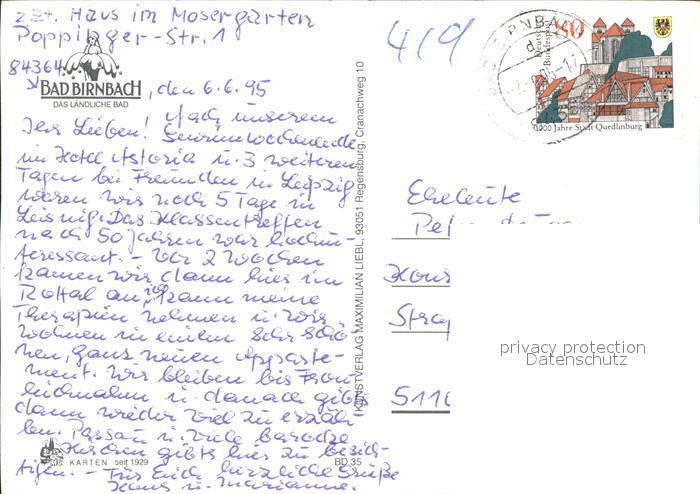 z.Zt. Haus im Mosergarten
Poppinger-Str. 1
84364
BAD BIRNBACH, den 6.6.95
DAS LÄNDLICHE BAD
Ihr Lieben! Nach unserem
Gewinnwochenende
im Hotel Astoria u. 3 weiteren
Tagen bei Freunden in Leipzig
waren wir noch 5 Tage in
Leisnig. Das Klassentreffen
nach 50 Jahren war hochin-
teressant. - Vor 2 Wochen
kamen wir dann hier im
Rottal an, ich kann meine
Therapien nehmen u. wir
wohnen in einem sehr schö-
nen, ganz neuen Apparte-
ment. Wir bleiben bis Fron-
leichnahm u. danach gibts
dann wieder viel zu erzäh-
len. Passau u. viele barocke
Kirchen gibts hier zu besich-
tigen. - Für Euch herzliche Grüße
Hans u. Marianne.
KARTEN seit 1929
BD 35
KUNSTVERLAG MAXIMILIAN LIEBL, 93051 Regensburg, Cranachweg 10
4/9
BAD BIRNBA
80
Deutsche
Bundespost
1000 Jahre Stadt Quedlinburg
Eheleute
Pet
Kons
Straß
511
privacy protection
Datenschutz